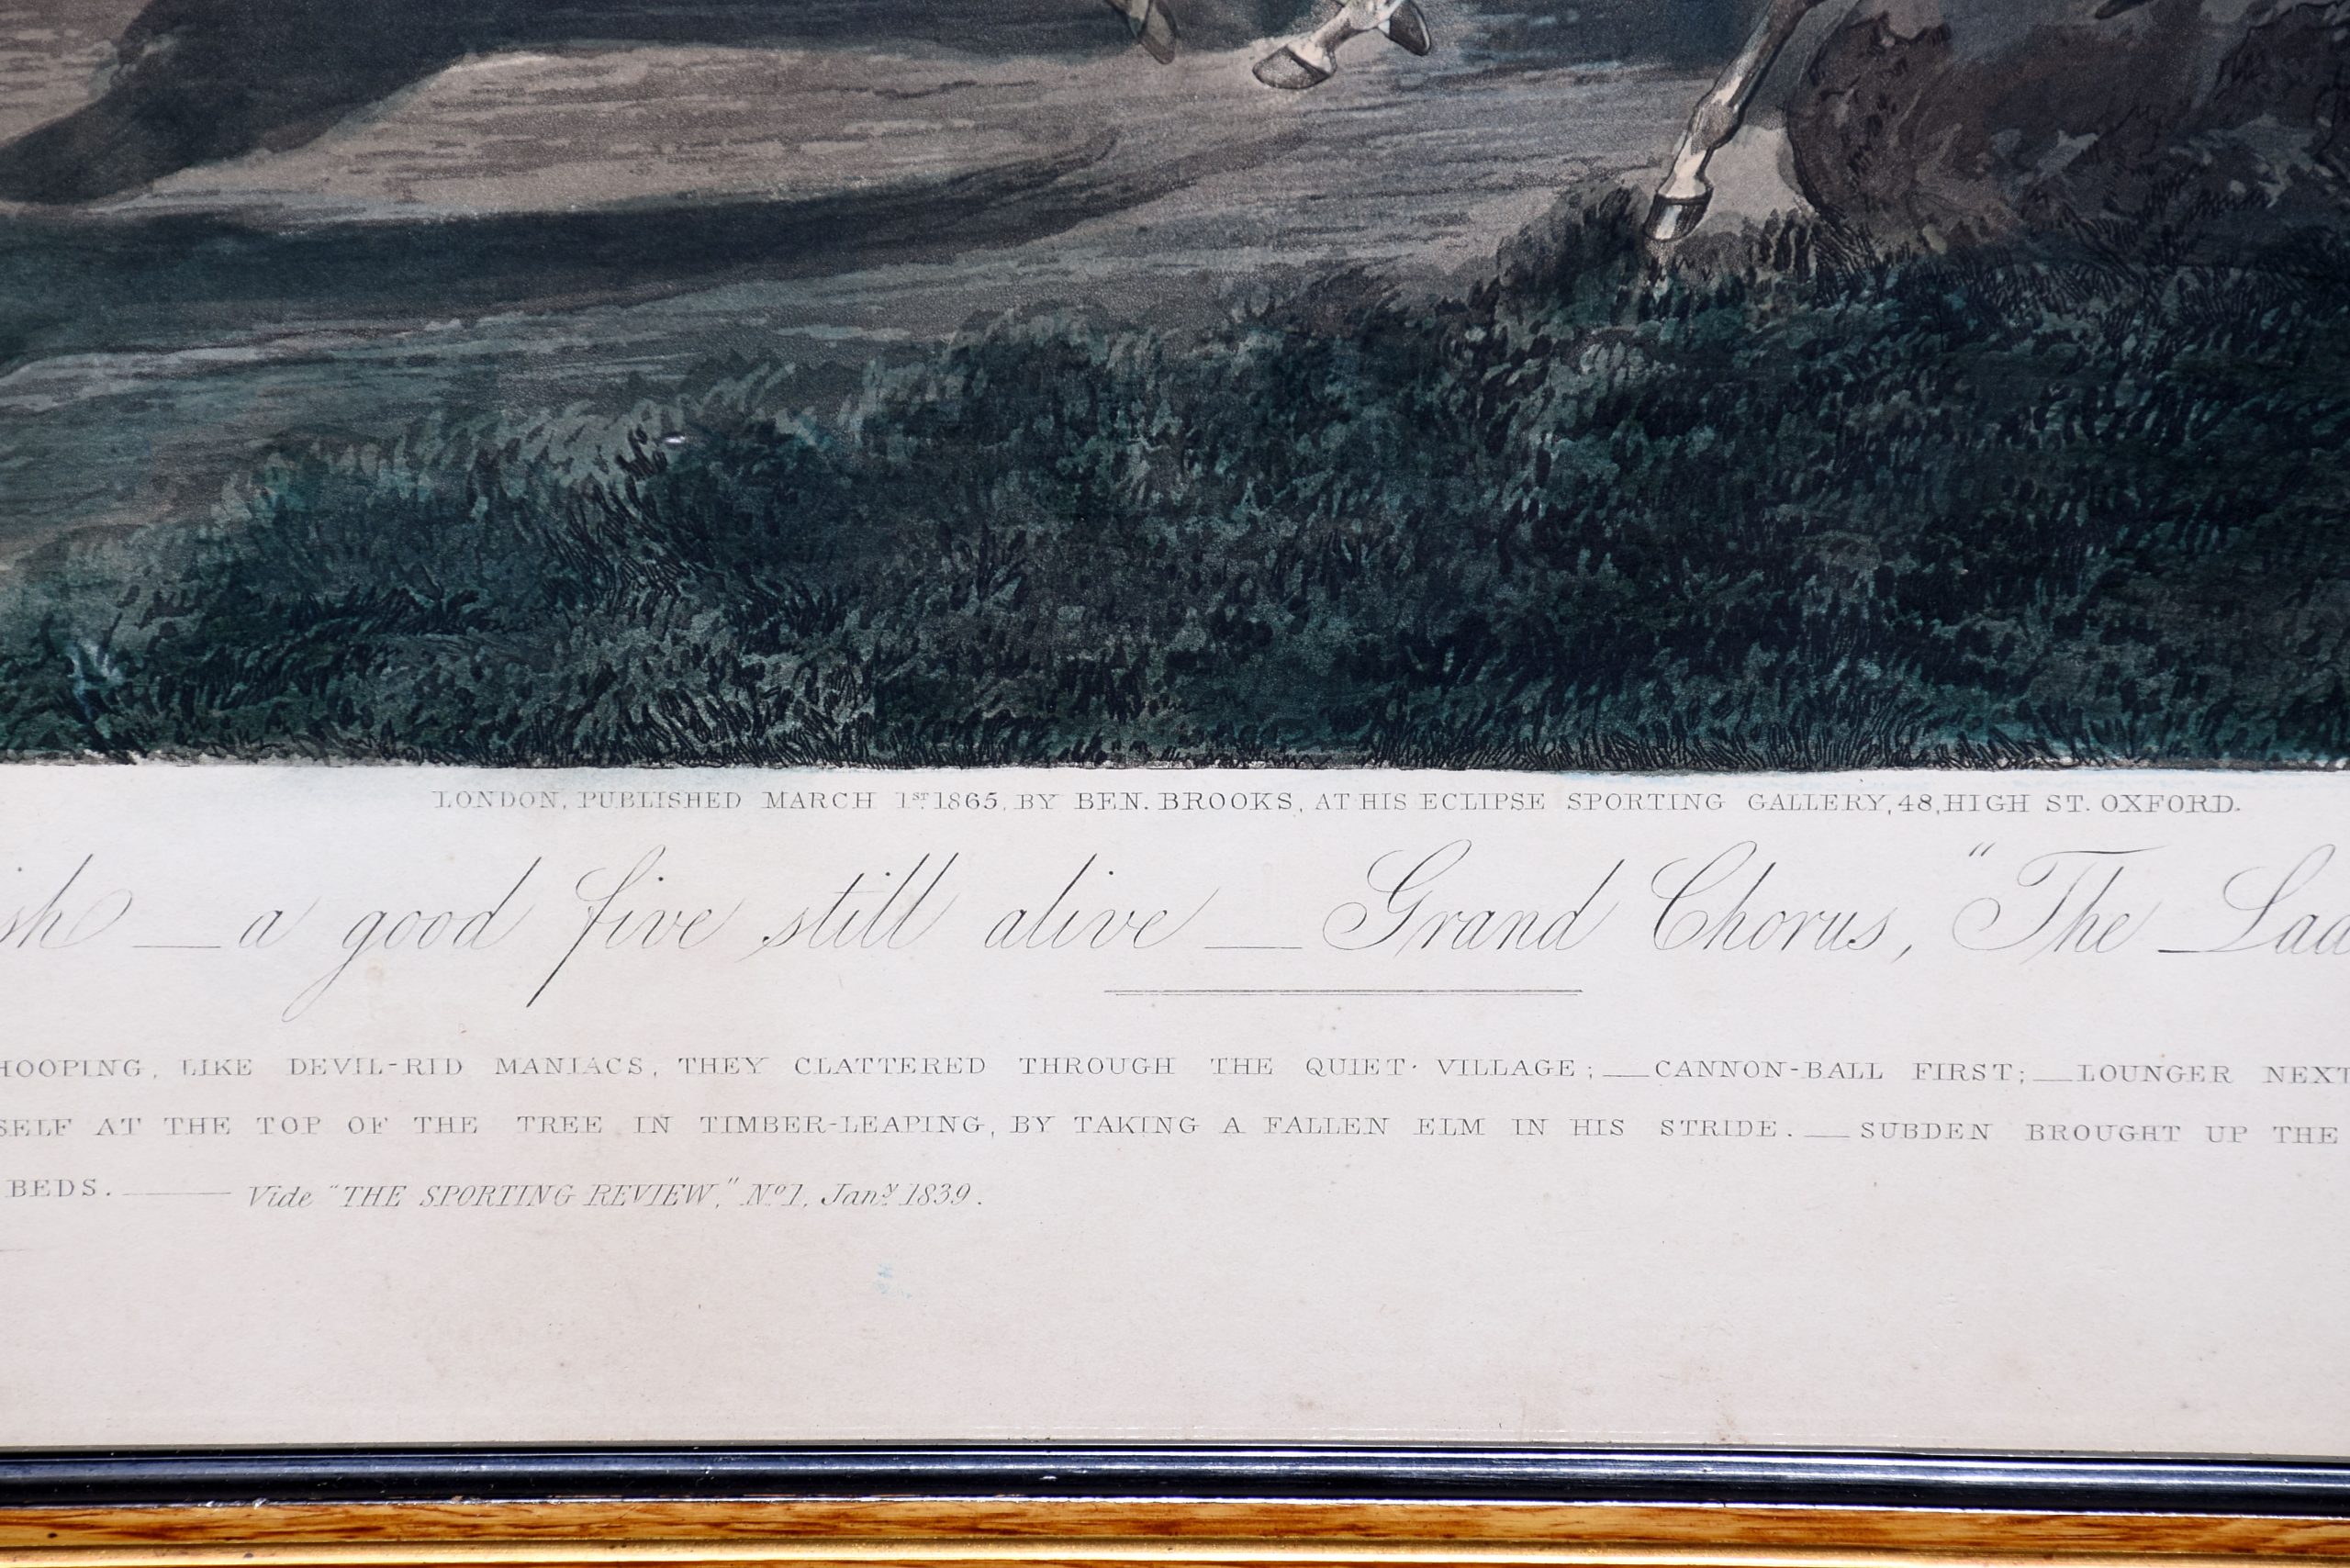 LONDON, PUBLISHED MARCH 1ST 1865, BY BEN. BROOKS, AT HIS ECLIPSE SPORTING GALLERY, 48, HIGH ST. OXFORD.
sh — a good five still alive — Grand Chorus, "The Lad
HOOPING, LIKE DEVIL-RID MANIACS, THEY CLATTERED THROUGH THE QUIET VILLAGE; — CANNON-BALL FIRST; — LOUNGER NEXT
SELF AT THE TOP OF THE TREE IN TIMBER-LEAPING, BY TAKING A FALLEN ELM IN HIS STRIDE. — SUBDEN BROUGHT UP THE
BEDS. — Vide "THE SPORTING REVIEW," No 1, Jany 1839.